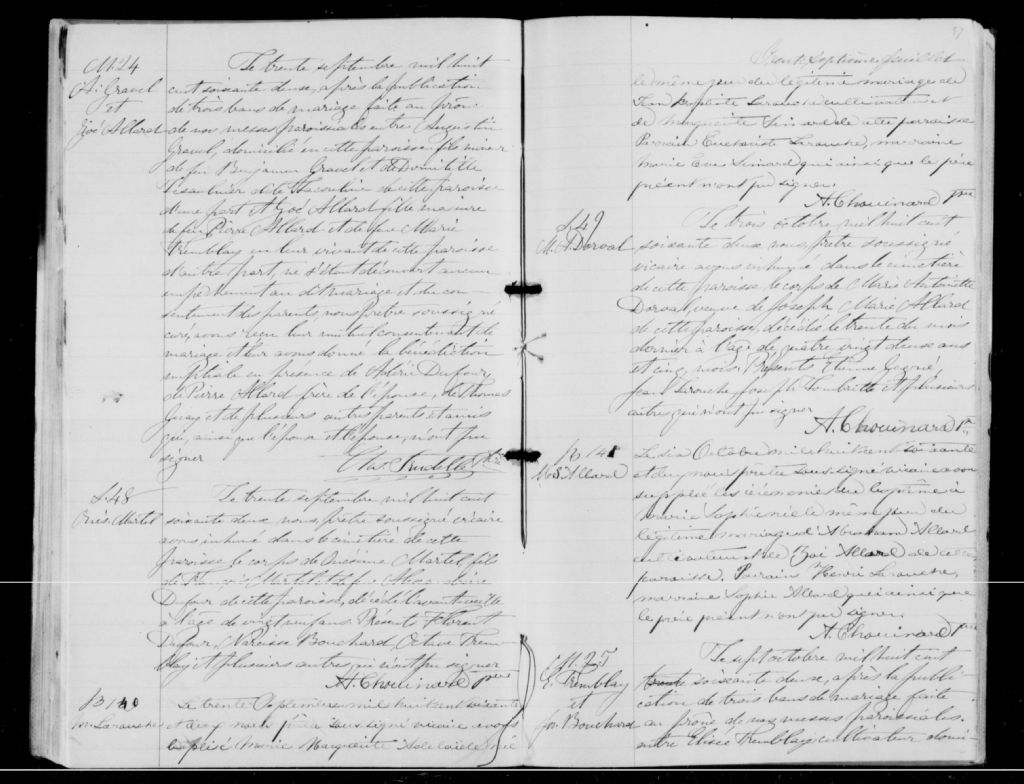 M. 24
Le trente septembre mil huit
cent soixante deux, après la publication
de trois bans de mariage faite au prône
de nos messes paroissiales entre Augustin
Gravel, domicilié en cette paroisse fils mineur
de feu Benjamin Gravel et de Domitille
de cette paroisse
d'une part Et Zoé Allard fille majeure
de feu Pierre Allard et de feue Marie
Tremblay en leur vivant de cette paroisse
d'autre part, ne s'étant découvert aucun
empêchement au dit mariage et du con-
sentement des parents, nous prêtre soussigné
curé, avons reçu leur mutuel consentement de
mariage et leur avons donné la bénédiction
nuptiale en présence de Dufour,
de Pierre Allard frère de l'épouse, de Thomas
Guay et de plusieurs autres parents et amis
qui, ainsi que l'époux et l'épouse, n'ont pu
signer
Chs. Trudelle Ptre
Gravel
et
Zoé Allard
S. 48
Martel
Le trente septembre mil huit cent
soixante deux, nous, prêtre soussigné vicaire
avons inhumé dans le cimetière de cette
paroisse le corps de Onésime Martel, fils
de François Martel et de feue
Dufour de cette paroisse, décédé l'avant veille
à l'âge de vingt un ans. Présents Florent
Dufour, Narcisse Bouchard, Octave Trem-
blay et plusieurs autres qui n'ont pu signer
A. Chouinard ptre
B 140
M. Larouche
Le trente Septembre mil huit cent soixante
et deux nous prêtre soussigné vicaire avons
baptisé Marie Marguerite Adelaïde, née
37
Trente Septième feuillet
le même jour du légitime mariage de
Jean Baptiste Larouche cultivateur et
de Marguerite Simard de cette paroisse
Parrain Larouche, marraine
Marie Simard qui ainsi que le père
présent n'ont pu signer.
A. Chouinard ptre
S. 49
M. A. Dorval
Le trois octobre mil huit cent
soixante deux nous, prêtre soussigné
vicaire avons inhumé dans le cimetière
de cette paroisse, le corps de Marie Antoinette
Dorval, veuve de Joseph Marie Allard
de cette paroisse, décédée le trente du mois
dernier à l'âge de quatre vingt deux ans
et cinq mois. Présents Etienne Gagné,
Jean Larouche, Joseph et plusieurs
autres qui n'ont pu signer
A. Chouinard Ptre
B 141
M. S. Allard
Le six Octobre mil huit cent soixante
et deux nous prêtre soussigné vicaire avons
suppléé les cérémonies du baptême à
Marie Sophie née le même jour du
légitime mariage d'Abraham Allard
cultivateur et de Zoé Allard de cette
paroisse. Parrain Henri Larouche,
marraine Sophie Allard qui ainsi que
le père présent n'ont pu signer
A. Chouinard Ptre
M. 25
E. Tremblay
et
Bouchard
Le sept octobre mil huit cent
soixante deux, après la publi-
cation de trois bans de mariage faite
au prône de nos messes paroissiales
entre Elisée Tremblay cultivateur domi-